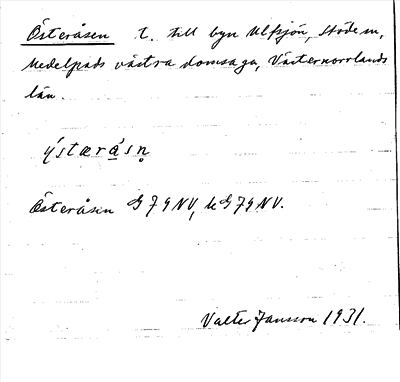 Österåsen t. till byn Ulfsjön, Stöde sn,
Medelpads västra domsaga, Västernorrlands
län.
ýstæråsn̥
Österåsen G 79 NV, k G 79 NV.
Valter Jansson 1931.